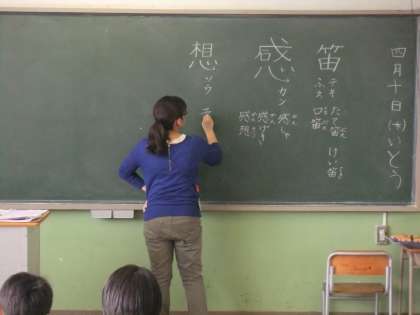 四月十日(十)いとう
笛
テキ
ふえ
たて笛
口笛
けい笛
感
カン
感しゃ
感げき
感想
想
ソウ